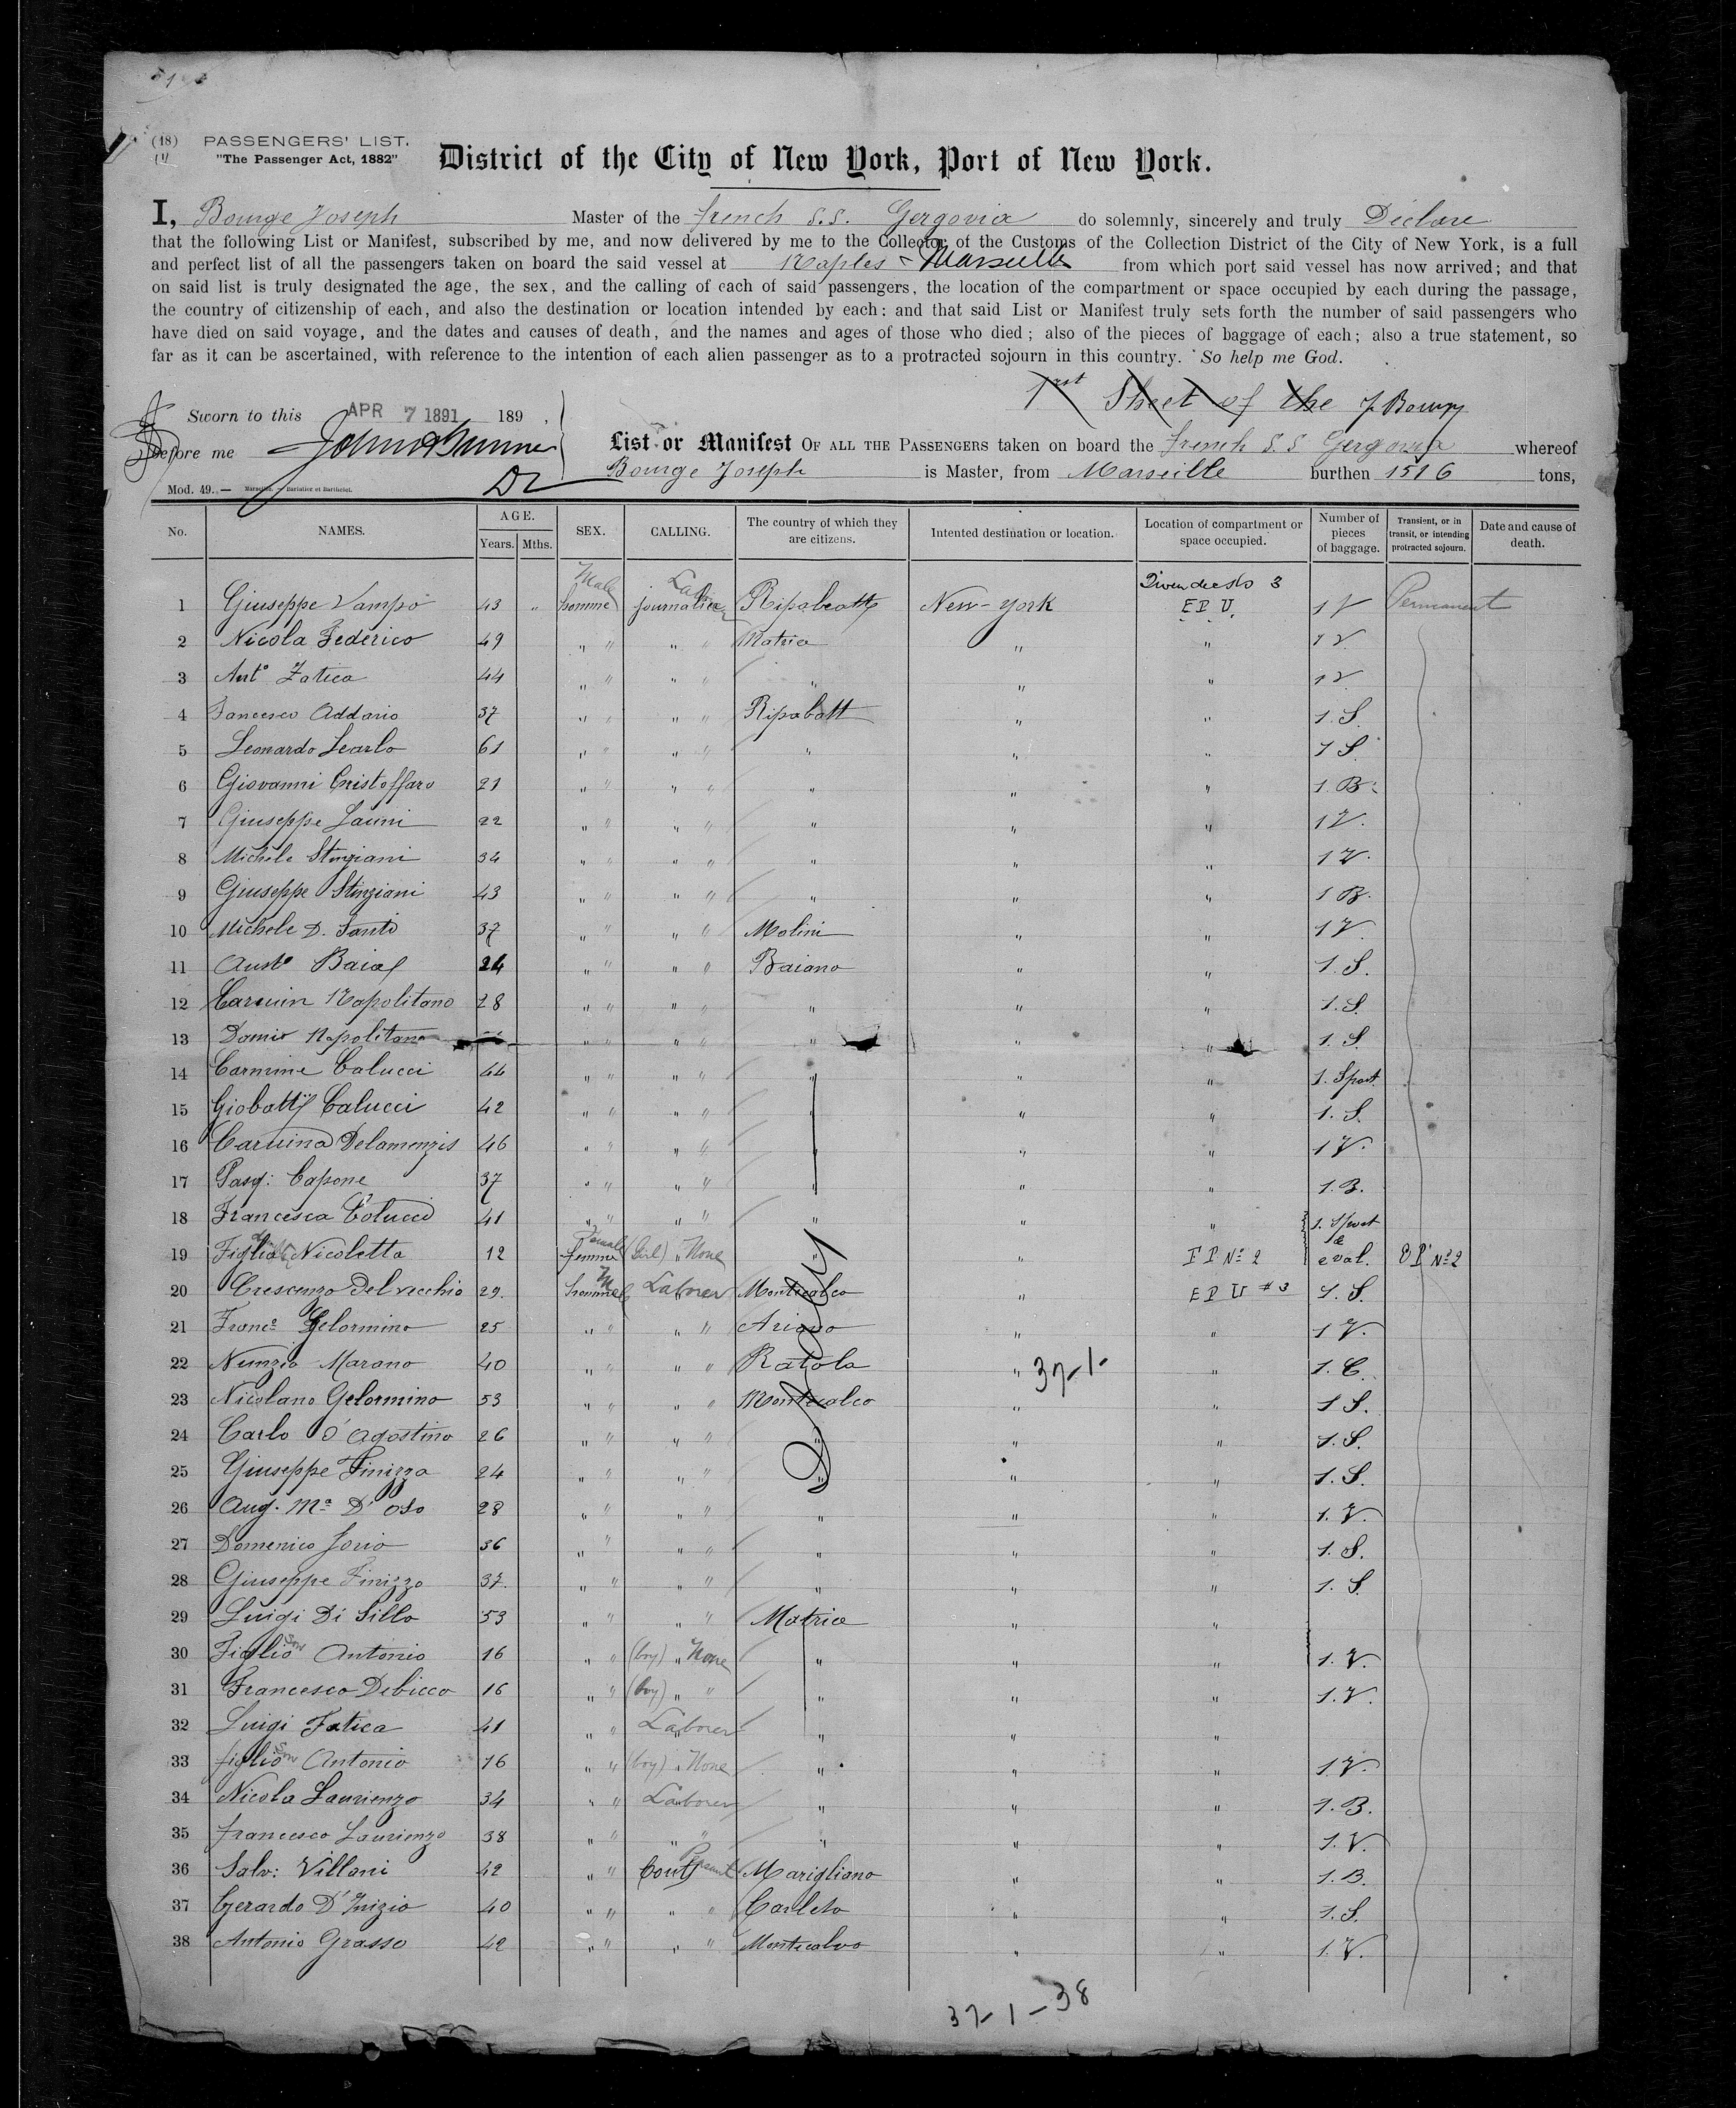 (18) PASSENGERS' LIST.
"The Passenger Act, 1882"
District of the City of New York, Port of New York.
I, Bourge Joseph Master of the french S.S. Gergovia do solemnly, sincerely and truly Déclare
that the following List or Manifest, subscribed by me, and now delivered by me to the Collector of the Customs of the Collection District of the City of New York, is a full
and perfect list of all the passengers taken on board the said vessel at Naples - Marseille from which port said vessel has now arrived; and that
on said list is truly designated the age, the sex, and the calling of each of said passengers, the location of the compartment or space occupied by each during the passage,
the country of citizenship of each, and also the destination or location intended by each; and that said List or Manifest truly sets forth the number of said passengers who
have died on said voyage, and the dates and causes of death, and the names and ages of those who died; also of the pieces of baggage of each; also a true statement, so
far as it can be ascertained, with reference to the intention of each alien passenger as to a protracted sojourn in this country. So help me God.
1rst Sheet of the J Bourge
Sworn to this APR 7 1891 189 ,
Before me
List or Manifest OF ALL THE PASSENGERS taken on board the french S.S Gergovia whereof
Bourge Joseph is Master, from Marseille burthen 1516 tons,
Mod. 49. — Marseille. — Barlatier et Barthelet.
No. NAMES. AGE. Years. Mths. SEX. CALLING. The country of which they are citizens. Intented destination or location. Location of compartment or space occupied. Number of pieces of baggage. Transient, or in transit, or intending protracted sojourn. Date and cause of death.
1 Giuseppe Vampo 43 " homme Male journalier Laborer Ripabcatt New-york 3 E P U. 1 V Permanent
2 Nicola Federico 49 " " " " Matrice " " 1 V.
3 Ant° Fatica 44 " " " " " " " 1 V
4 Fancesco Addario 37 " " " " Ripabott " " 1. S.
5 Leonardo Learlo 61 " " " " " " " 1 S.
6 Giovanni Cristoffaro 21 " " " " " " " 1. B.
7 Giuseppe Iauni 22 " " " " " " " 1 V.
8 Michele Stinziani 34 " " " " " " " 1 V.
9 Giuseppe Stinziani 43 " " " " " " " 1 B.
10 Michele D. Santi 37 " " " " Molini " " 1 V
11 Aust° Baia 24 " " " " Baiano " " 1. S.
12 Carmin Napolitano 28 " " " " " " " 1. S.
13 Domio Napolitano " " " " " " " 1. S.
14 Carmine Calucci 44 " " " " " " " 1. Sport
15 Giobatt Calucci 42 " " " " " " " 1. S.
16 Carmina Delamenzis 46 " " " " " " " 1 V.
17 Pasq: Capone 37 " " " " " " " 1. B.
18 Francesca Colucci 41 " " " " " " " 1. Sport
19 Figlia Nicoletta 12 femme Female (Girl) " None " " E P No 2 e val. E P No 2
20 Crescenzo Delvecchio 29. homme M Laborer Montecalvo " E P U #3 1. S.
21 Franco Gelormino 25 " " " " Ariano " " 1 V.
22 Nunzio Marano 40 " " " " Ratola " 37-1- " 1. C.
23 Nicolano Gelormino 53 " " " " Montecalvo " " 1 S.
24 Carlo D'Agostino 26 " " " " " " " 1. S.
25 Giuseppe Finizza 24 " " " " " " " 1. S.
26 Aug. Ma D'Oso 28 " " " " " " " 1. V.
27 Domenico Jorio 36 " " " " " " " 1. S.
28 Giuseppe Finizzo 37. " " " " " " " 1. S.
29 Luigi Di Lillo 53 " " " " Matrice " "
30 Figlio Son Antonio 16 " " (boy) " None " " " 1. V.
31 Francesco Debicco 16 " " (boy) " " " " " 1. V.
32 Luigi Fatica 41 " " Laborer " " "
33 figlio Son Antonio 16 " " (boy) " None " " " 1. V.
34 Nicola Laurienzo 34 " " Laborer " " " 1. B.
35 francesco Laurienzo 38 " " " " " " " 1. V.
36 Salv: Villani 42 " " Peasant Marigliano " " 1. B.
37 Gerardo D'Inizio 40 " " " " Carleto " " 1. S.
38 Antonio Grasso 42 " " " " Montecalvo " " 1. V.
37-1-38